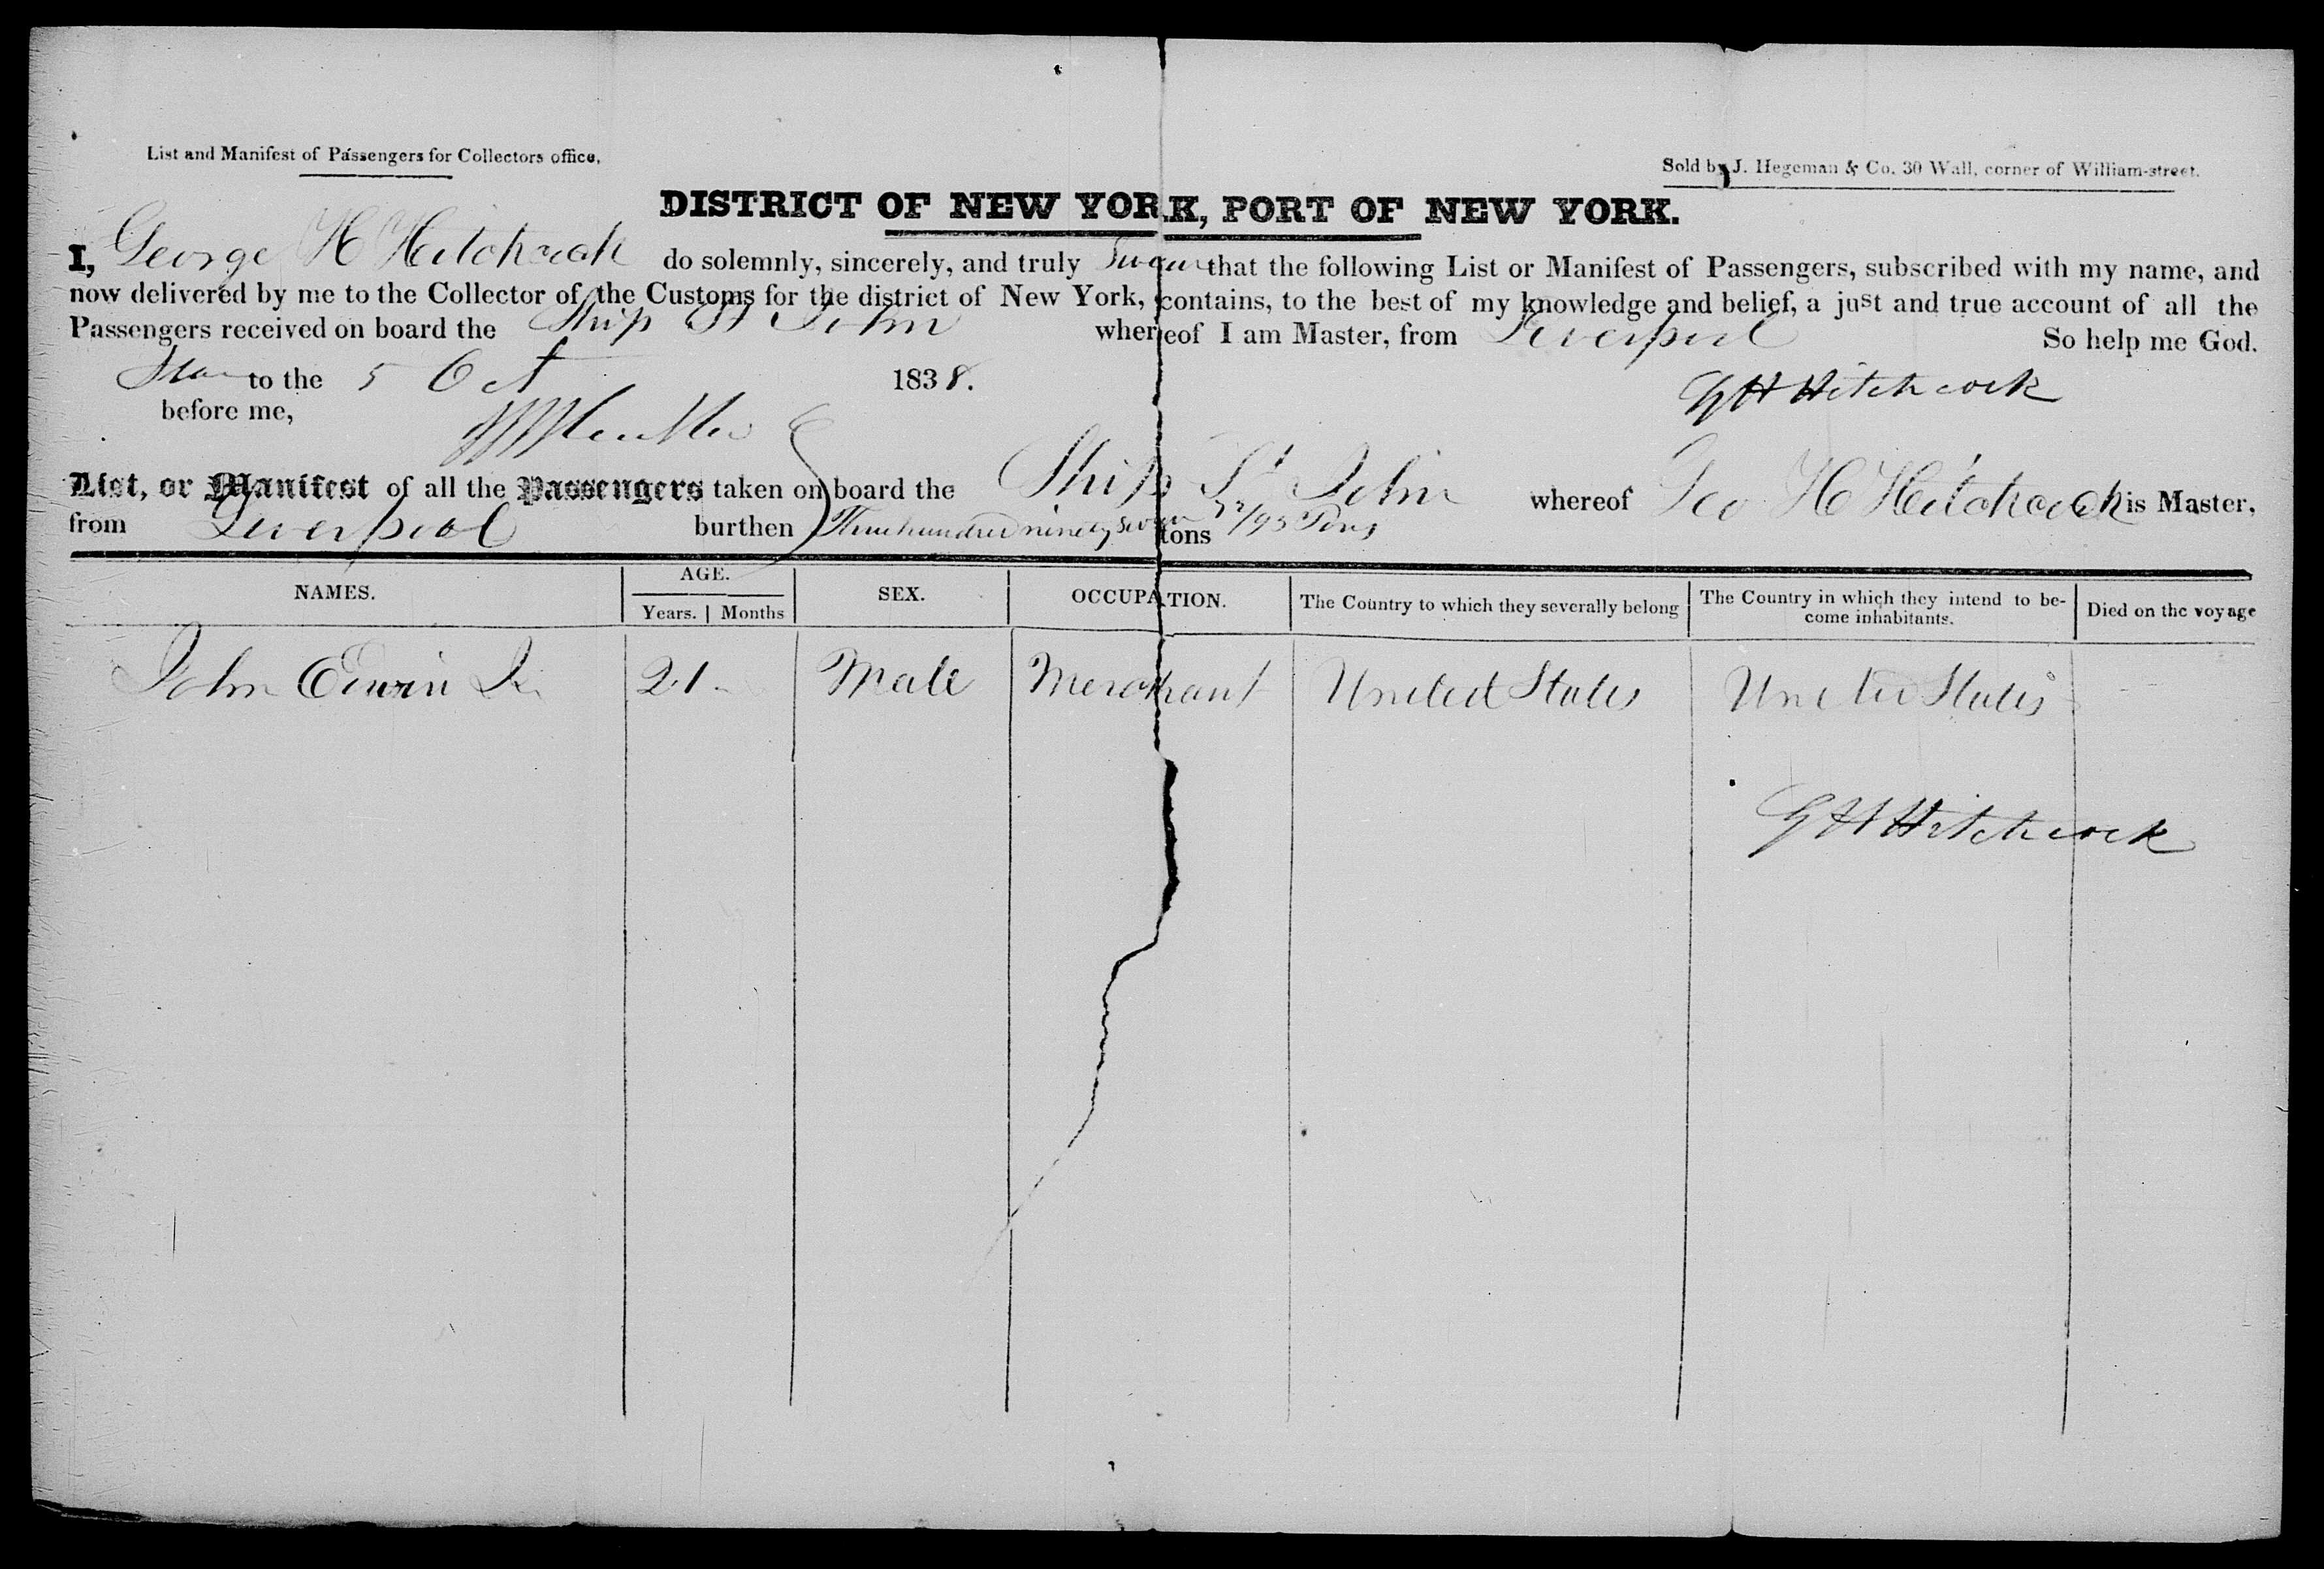 List and Manifest of Passengers for Collectors office,
Sold by J. Hegeman & Co. 30 Wall, corner of William-street.
DISTRICT OF NEW YORK, PORT OF NEW YORK.
I, George H Hitchcock do solemnly, sincerely, and truly Swear that the following List or Manifest of Passengers, subscribed with my name, and
now delivered by me to the Collector of the Customs for the district of New York, contains, to the best of my knowledge and belief, a just and true account of all the
Passengers received on board the Ship St John whereof I am Master, from Liverpool So help me God.
to the 5 Oct 1838.
G H Hitchcock
before me,
List, or Manifest of all the Passengers taken on board the Ship St John whereof Geo H Hitchcock is Master,
from Liverpool burthen Three hundred ninety seven tons /95 Tons
NAMES. AGE. SEX. OCCUPATION. The Country to which they severally belong The Country in which they intend to be-come inhabitants. Died on the voyage
Years. Months
John 21 Male Merchant United States United States
G H Hitchcock